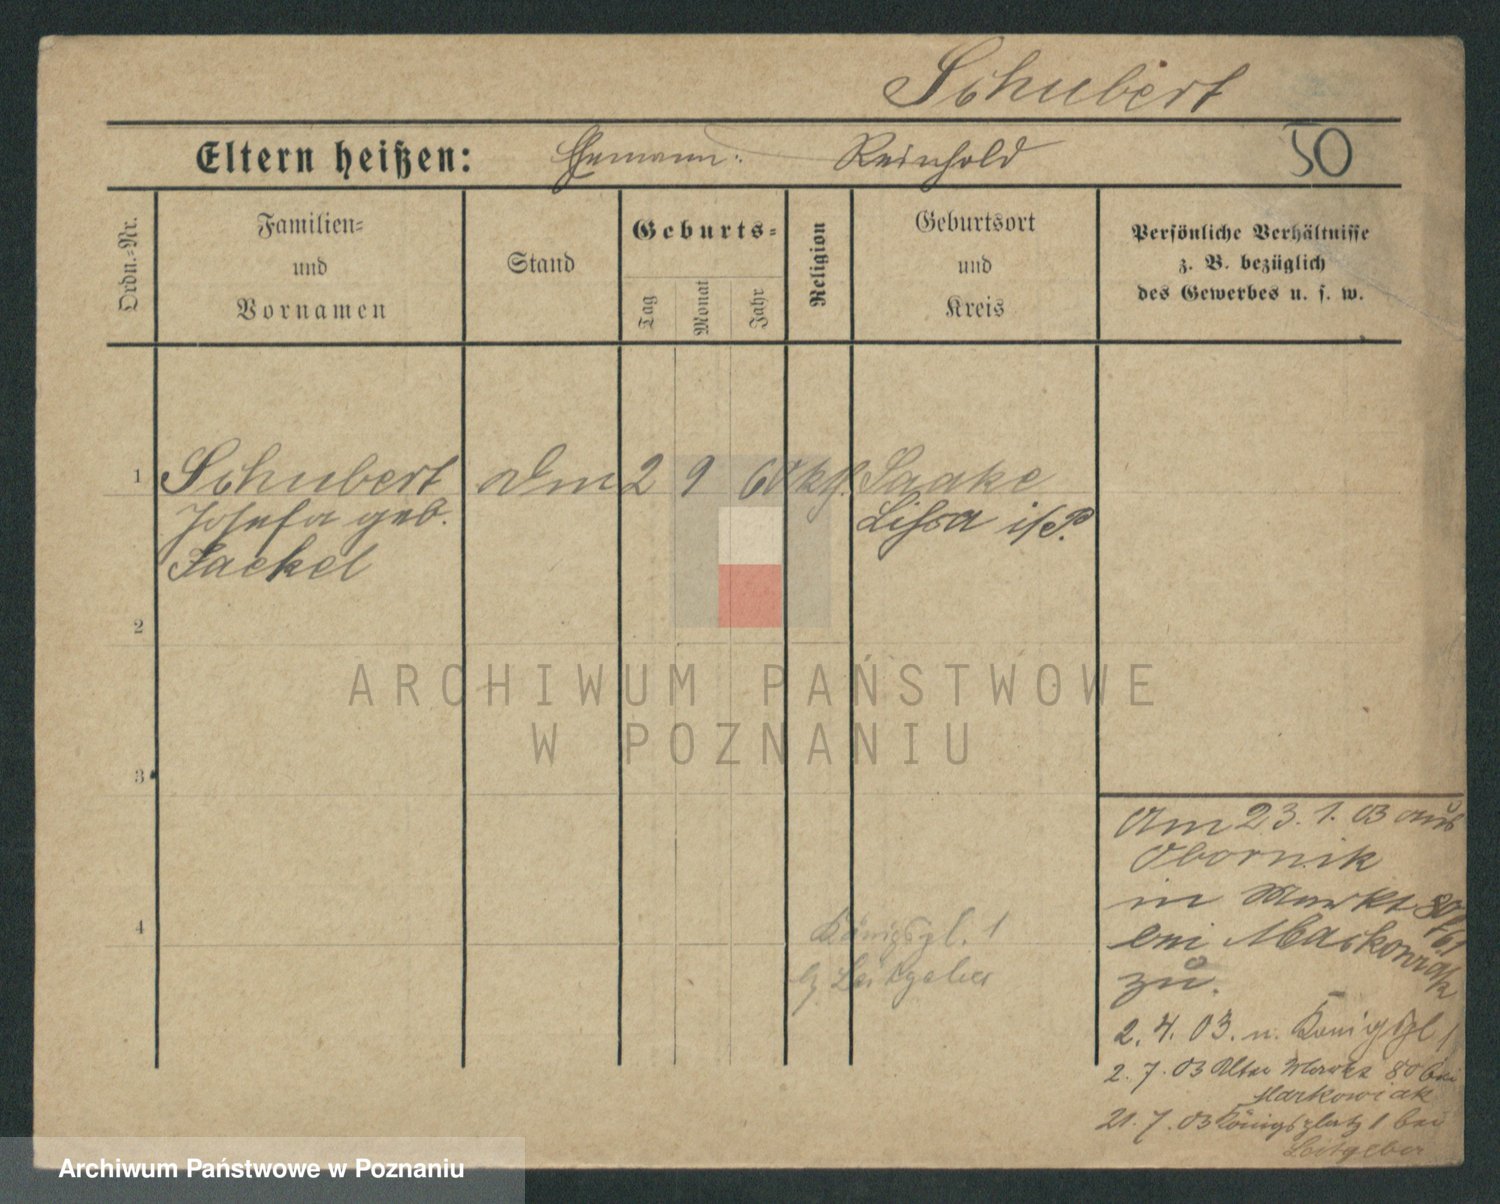 Schubert
Eltern heißen: Ehemann: Reinhold 50
Ordn.-Nr.
Familien-
und
Vornamen
Stand
Geburts-
Tag
Monat
Jahr
Religion
Geburtsort
und
Kreis
Persönliche Verhältnisse
z. B. bezüglich
des Gewerbes u. s. w.
1 Schubert 2 9 60 Saake
Josefa geb. Lissa i/P.
Jaekel
2
3
4
ARCHIWUM PAŃSTWOWE
W POZNANIU
Am 23. 1. 03 aus
Obornik
in Markt 80/81
bei Markowiak
zu.
2. 4. 03. n. Königspl 1
2. 7. 03 Alter Markt 80 bei
Markowiak
21. 7. 03 Königsplatz 1 bei
Leitgeber
Königspl. 1
b/ Leitgeber
Archiwum Państwowe w Poznaniu